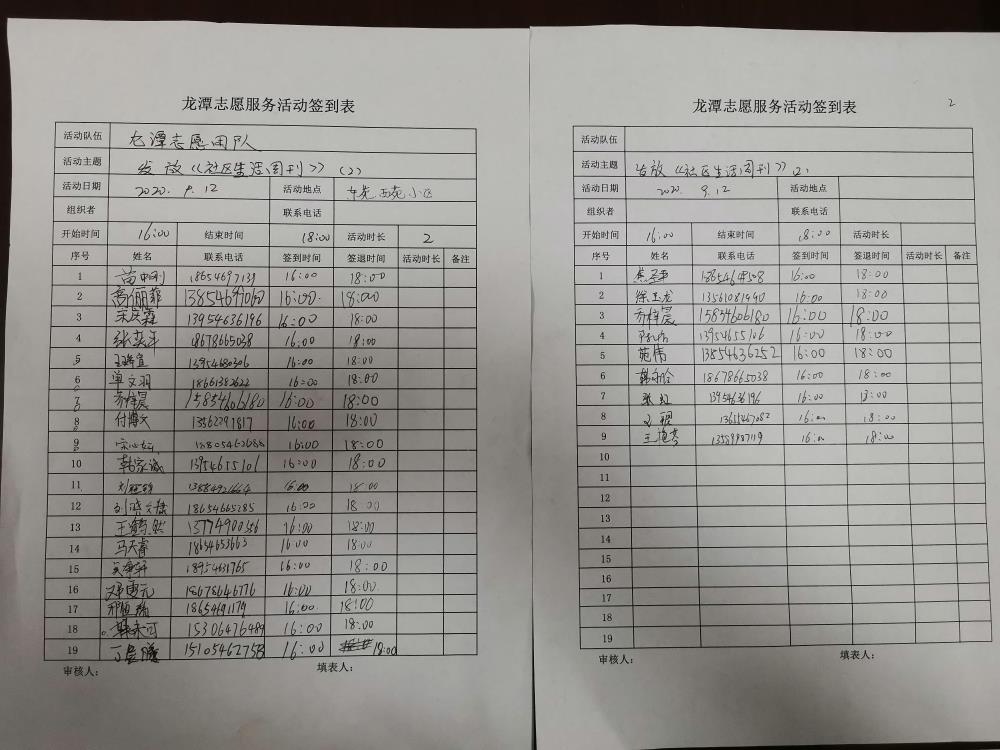 龙潭志愿服务活动签到表
活动队伍 龙潭志愿团队
活动主题 发放《社区生活周刊》(2)
活动日期 2020. 9. 12 活动地点 东苑西苑小区
组织者 联系电话
开始时间 16:00 结束时间 18:00 活动时长 2
序号 姓名 联系电话 签到时间 签退时间 活动时长 备注
1 16:00 18:00
2 高俪菲 16:00 18:00
3 13954636196 16:00 18:00
4 18678665038 16:00 18:00
5 16:00 18:00
6 单文羽 18661382622 16:00 18:00
7 乔梓晨 15854606180 16:00 18:00
8 付博文 13562291817 16:00 18:00
9 16:00 18:00
10 韩家诚 13954655106 16:00 18:00
11 16:00 18:00
12 18654665285 16:00 18:00
13 16:00 18:00
14 马天睿 16:00 18:00
15 18954631765 16:00 18:00
16 18678646776 16:00 18:00
17 18654691179 16:00 18:00
18 15306476489 16:00 18:00
19 15105462758 16:00 18:00
审核人： 填表人：
2
龙潭志愿服务活动签到表
活动队伍
活动主题 发放《社区生活周刊》(2)
活动日期 2020. 9. 12 活动地点
组织者 联系电话
开始时间 16:00 结束时间 18:00 活动时长
序号 姓名 联系电话 签到时间 签退时间 活动时长 备注
1 16:00 18:00
2 徐玉龙 13561081990 16:00 18:00
3 乔梓晨 15854606180 16:00 18:00
4 13954655106 16:00 18:00
5 范伟 13854636252 16:00 18:00
6 18678665038 16:00 18:00
7 张红 13954636196 16:00 18:00
8 13655467082 16:00 18:00
9 16:00 18:00
10
11
12
13
14
15
16
17
18
19
审核人： 填表人：